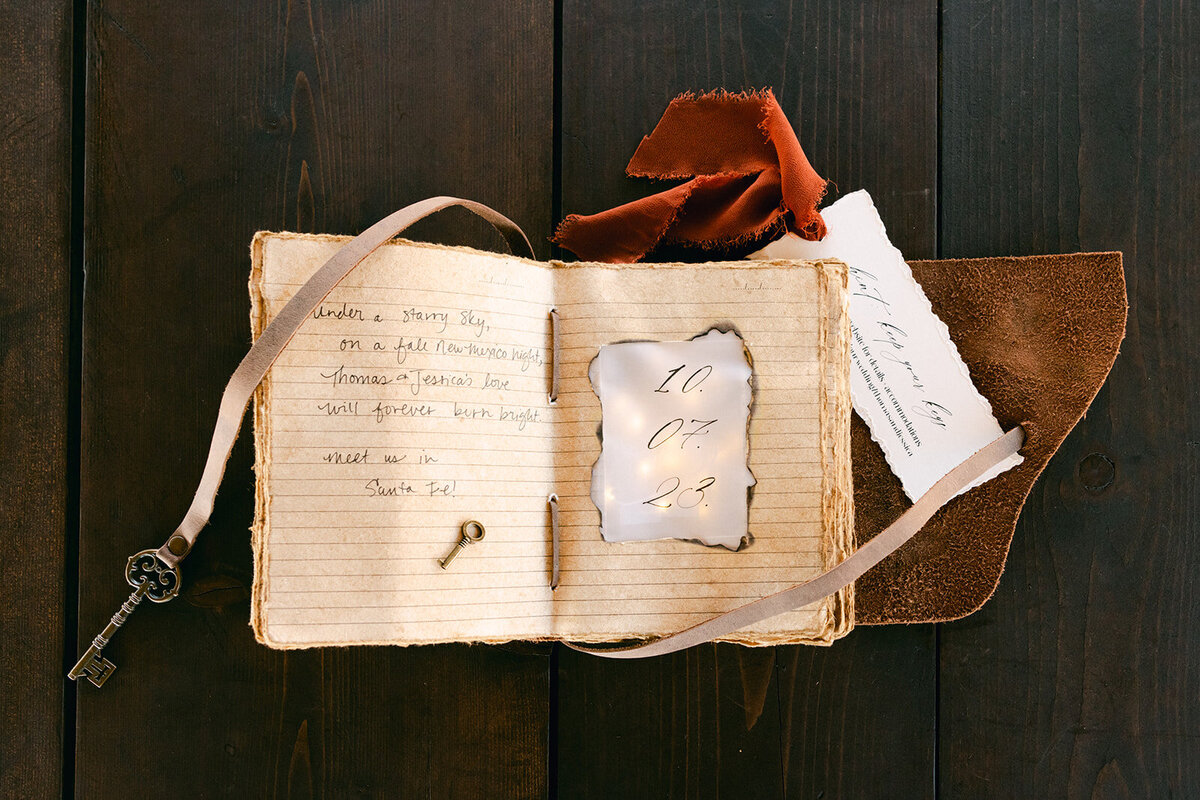 under a starry sky,
on a fall new mexico night,
Thomas & Jessica's love
will forever burn bright.
meet us in
Santa Fe!
10.
07.
23.
keep your key
website for details: accommodations